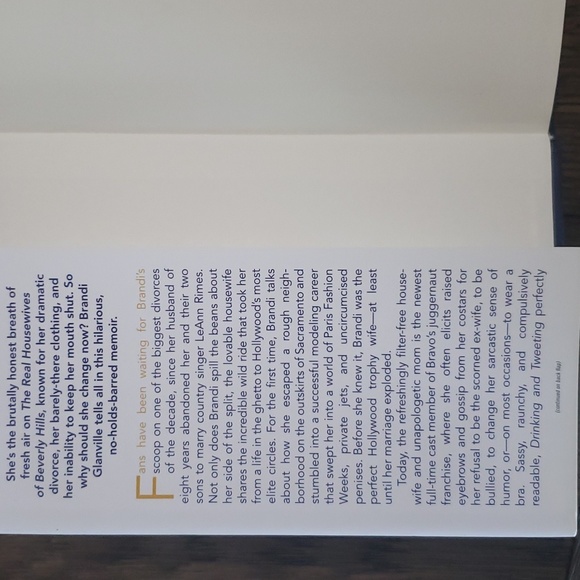 She's the brutally honest breath of
fresh air on The Real Housewives
of Beverly Hills, known for her dramatic
divorce, her barely-there clothing, and
her inability to keep her mouth shut. So
why should she change now? Brandi
Glanville tells all in this hilarious,
no-holds-barred memoir.
Fans have been waiting for Brandi's
scoop on one of the biggest divorces
of the decade, since her husband of
eight years abandoned her and their two
sons to marry country singer LeAnn Rimes.
Not only does Brandi spill the beans about
her side of the split, the lovable housewife
shares the incredible wild ride that took her
from a life in the ghetto to Hollywood's most
elite circles. For the first time, Brandi talks
about how she escaped a rough neigh-
borhood on the outskirts of Sacramento and
stumbled into a successful modeling career
that swept her into a world of Paris Fashion
Weeks, private jets, and uncircumcised
penises. Before she knew it, Brandi was the
perfect Hollywood trophy wife—at least
until her marriage exploded.
Today, the refreshingly filter-free house-
wife and unapologetic mom is the newest
full-time cast member of Bravo's juggernaut
franchise, where she often elicits raised
eyebrows and gossip from her costars for
her refusal to be the scorned ex-wife, to be
bullied, to change her sarcastic sense of
humor, or—on most occasions—to wear a
bra. Sassy, raunchy, and compulsively
readable, Drinking and Tweeting perfectly
(continued on back flap)